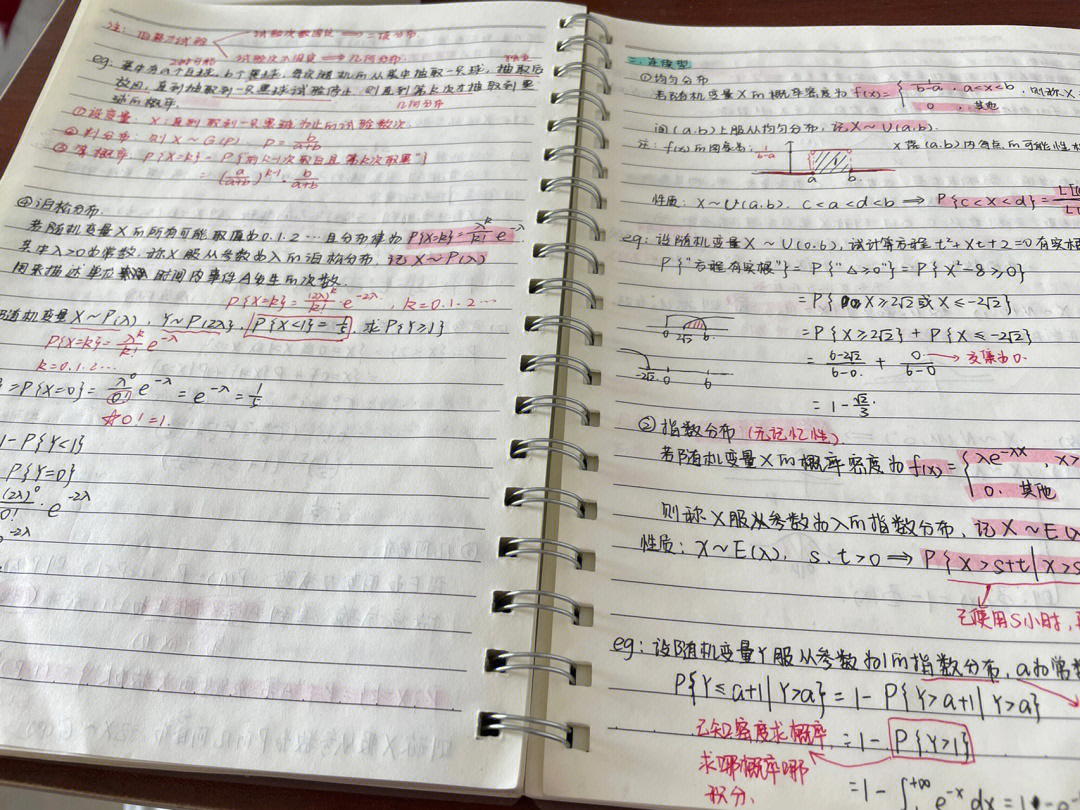 注：伯努利试验 试验次数固定 ⟹ 二项分布
试验次数不固定 ⟹ 几何分布
eg: 袋中有a个白球，b个黑球，每次随机从袋中抽取一只球，抽取后
放回，直到抽取到一只黑球试验停止，则直到第k次才抽取到黑
球的概率。 几何分布
①设变量 X：直到取到一只黑球为止的试验数次
②判分布：则 X~G(P). P=b/(a+b)
③算概率：P{X=k}=P{"前k-1次取白且第k次取黑"}
=(a/(a+b))^(k-1)·b/(a+b)
④泊松分布.
若随机变量X的所有可能取值为0.1.2…且分布律为P{X=k}=λ^k/k! e^-λ
其中λ>0为常数，称X服从参数为λ的泊松分布，记X~P(λ)
用来描述单位时间内事件A发生的次数.
P{X=k}=(2λ)^k/k!·e^-2λ，k=0.1.2…
随机变量X~P(λ)，Y~P(2λ)，P{X<1}=1/5，求P{Y≥1}
P{X=k}=λ^k/k! e^-λ
k=0.1.2.…
=P{X=0}=λ^0/0! e^-λ=e^-λ=1/5
☆0!=1.
1-P{Y<1}
P{Y=0}
(2λ)^0/0!·e^-2λ
-2λ
二.连续型
①均匀分布
若随机变量X的概率密度为f(x)={1/(b-a)，a<x<b，则称X
0，其他
间(a.b)上服从均匀分布，记X~U(a.b).
注：f(x)的图像为：1/(b-a) a b X落(a.b)内每点的可能性
性质：X~U(a.b). c<a<d<b ⟹ P{c<X<d}=
eg：设随机变量X~U(0.6)，试计算方程t²+Xt+2=0有实根
P{"方程有实根"}=P{"Δ≥0"}=P{X²-8≥0}
=P{X≥2√2或X≤-2√2}
0 2√2 6 =P{X≥2√2}+P{X≤-2√2}
-2√2 0 6 =(6-2√2)/(6-0)+0/(6-0) → 交集为0.
=1-√2/3.
②指数分布(无记忆性)
若随机变量X的概率密度为f(x)={λe^-λx，x>
0. 其他
则称X服从参数为λ的指数分布，记X~E(λ
性质：X~E(λ)，s.t>0 ⟹ P{X>s+t|X>s
已使用S小时，
eg：设随机变量Y服从参数为1的指数分布，a为常
P{Y≤a+1|Y>a}=1-P{Y>a+1|Y>a}
已知密度求概率， =1-P{Y>1}
求哪概率哪
积分、 =1-∫^+∞ e^-x dx=1-e